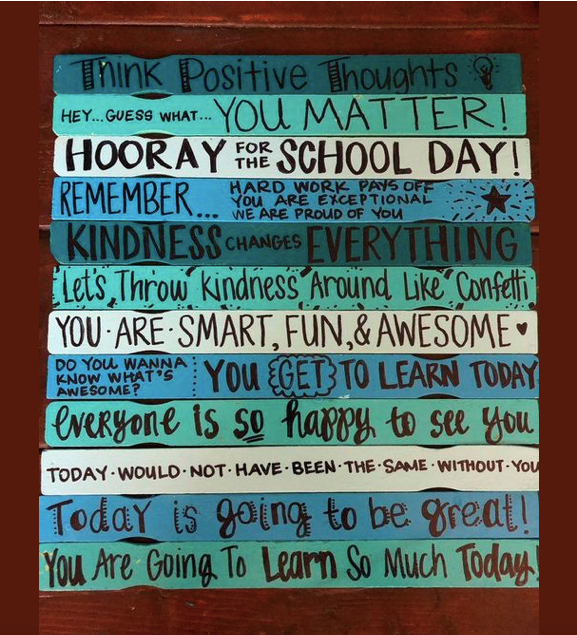 Think Positive Thoughts
HEY...GUESS WHAT... YOU MATTER!
HOORAY FOR THE SCHOOL DAY!
REMEMBER...
HARD WORK PAYS OFF
YOU ARE EXCEPTIONAL
WE ARE PROUD OF YOU
KINDNESS CHANGES EVERYTHING
Let's Throw Kindness Around Like Confetti
YOU·ARE·SMART, FUN, & AWESOME
DO YOU WANNA
KNOW WHAT'S
AWESOME?
YOU GET TO LEARN TODAY
everyone is so happy to see you
TODAY·WOULD·NOT·HAVE·BEEN·THE·SAME·WITHOUT·YOU
Today is going to be great!
You Are Going To Learn So Much Today!